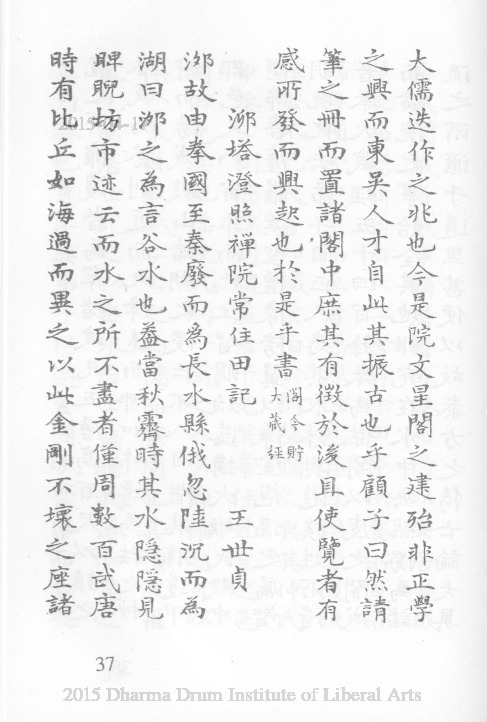 大儒迭作之兆也今是院文星閣之建殆非正學
之興而東吳人才自此其振古也乎顧子曰然請
筆之冊而置諸閣中庶其有徵於後且使覽者有
感所發而興起也於是乎書閣今貯大藏經
泖塔澄照禪院常住田記 王世貞
泖故由拳國至秦廢而為長水縣俄忽陸沉而為
湖曰泖之為言谷水也葢當秋霽時其水隱隱見
睥睨坊市迹云而水之所不盡者僅周數百武唐
時有比丘如海過而異之以此金剛不壞之座諸
37
2015 Dharma Drum Institute of Liberal Arts